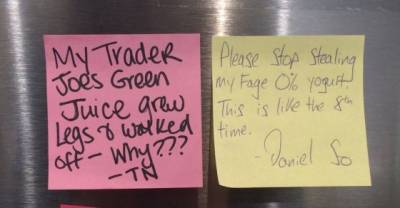 My Trader
Joes Green
Juice grew
Legs & walked
off - Why???
- TN
Please Stop Stealing
my Fage 0% yogurt.
This is like the 8th
time.
- Daniel So